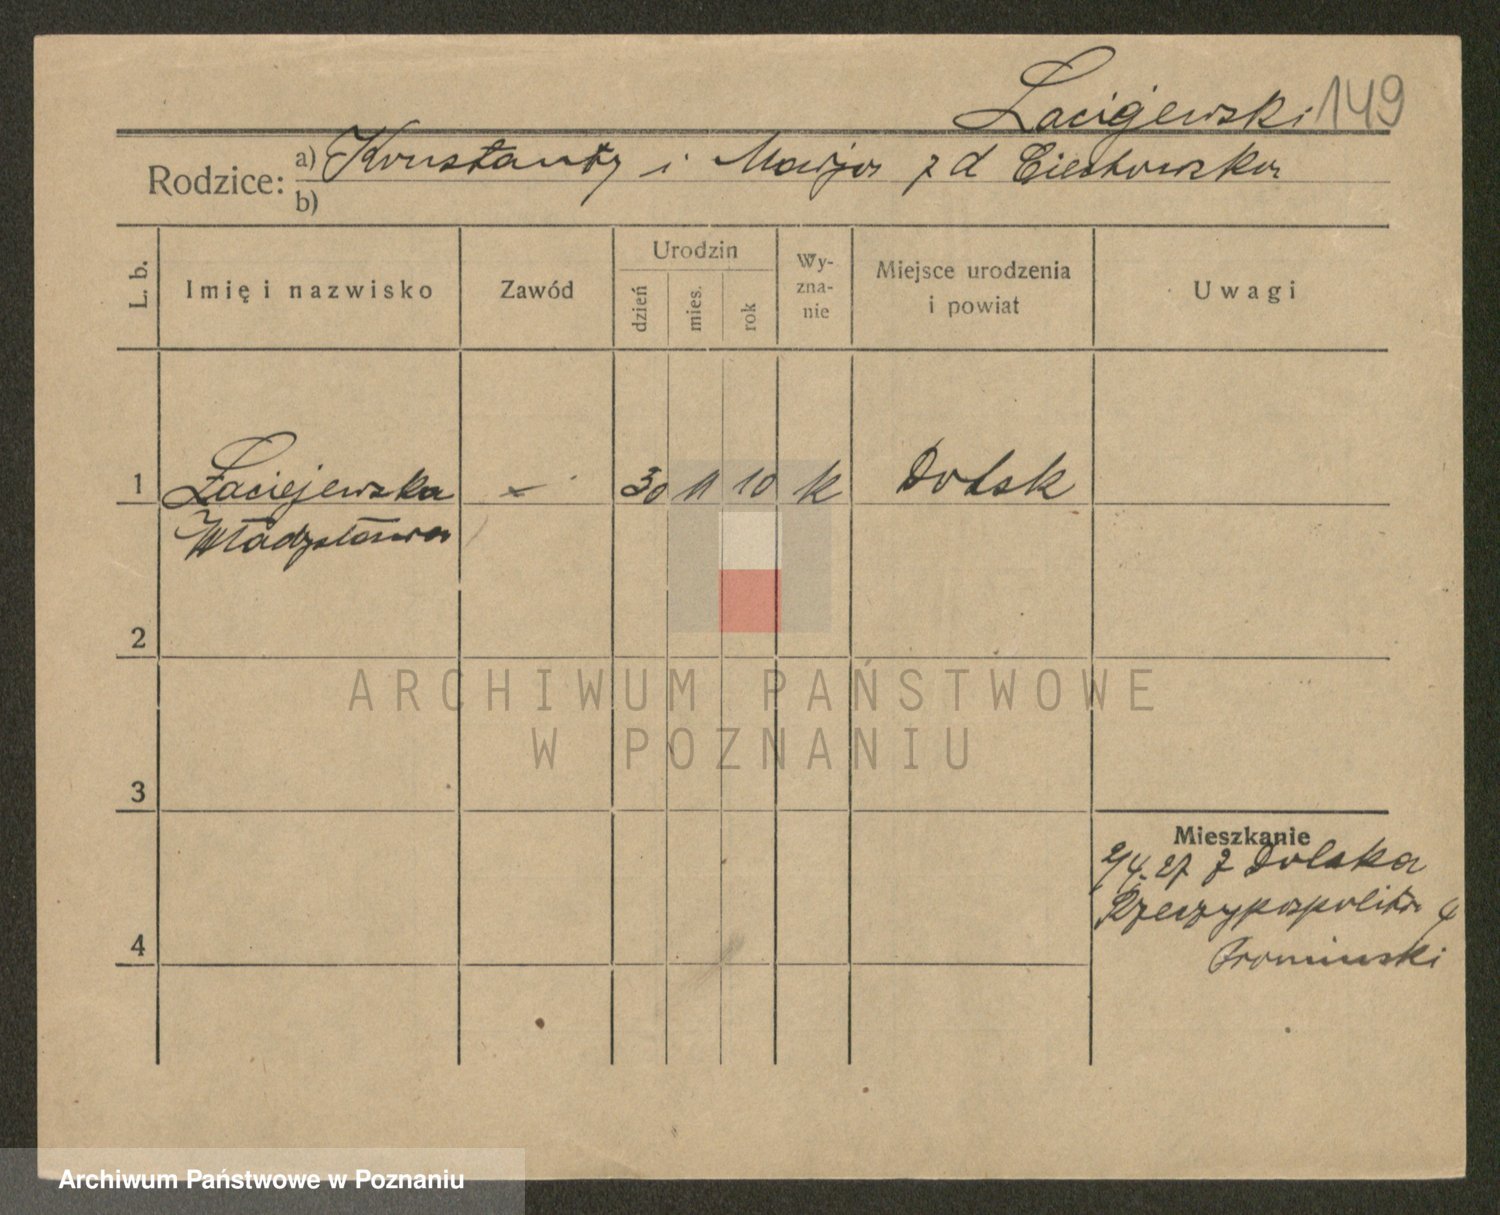 Łaciejewski 149
Rodzice: a) Konstanty i Marja z d Ciesłowska
b)
L. b.
Imię i nazwisko
Zawód
Urodzin
dzień
mies.
rok
Wy-
zna-
nie
Miejsce urodzenia
i powiat
Uwagi
1 Łaciejewska 30 11 10 k Dolsk
Władysława
2
ARCHIWUM PAŃSTWOWE
W POZNANIU
3
Mieszkanie
2/4.27 z Dolska
Rzeczypospolitej 4
4
Archiwum Państwowe w Poznaniu